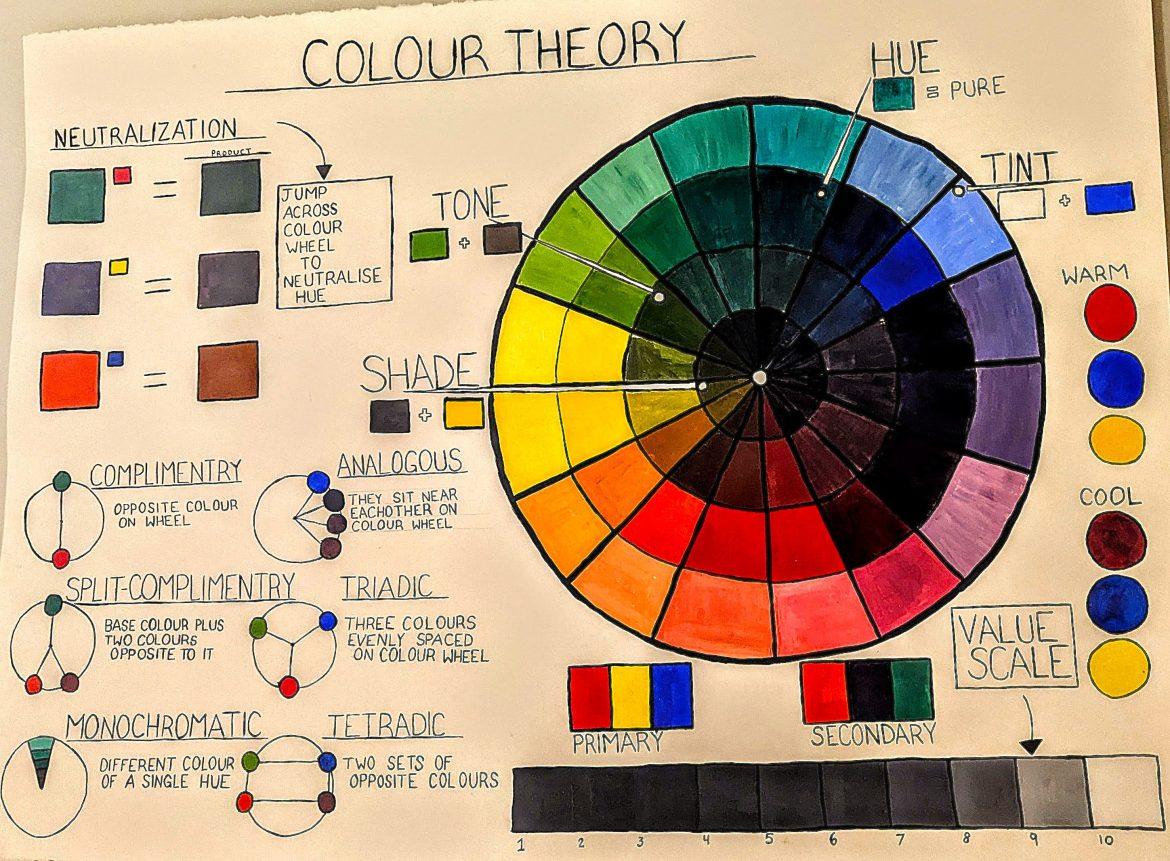 COLOUR THEORY
HUE
= PURE
NEUTRALIZATION
PRODUCT
=
=
=
JUMP
ACROSS
COLOUR
WHEEL
TO
NEUTRALISE
HUE
TONE
+
TINT
+
SHADE
+
WARM
COOL
COMPLIMENTRY
OPPOSITE COLOUR
ON WHEEL
ANALOGOUS
THEY SIT NEAR
EACHOTHER ON
COLOUR WHEEL
SPLIT-COMPLIMENTRY
BASE COLOUR PLUS
TWO COLOURS
OPPOSITE TO IT
TRIADIC
THREE COLOURS
EVENLY SPACED
ON COLOUR WHEEL
MONOCHROMATIC
DIFFERENT COLOUR
OF A SINGLE HUE
TETRADIC
TWO SETS OF
OPPOSITE COLOURS
PRIMARY
SECONDARY
VALUE
SCALE
1 2 3 4 5 6 7 8 9 10